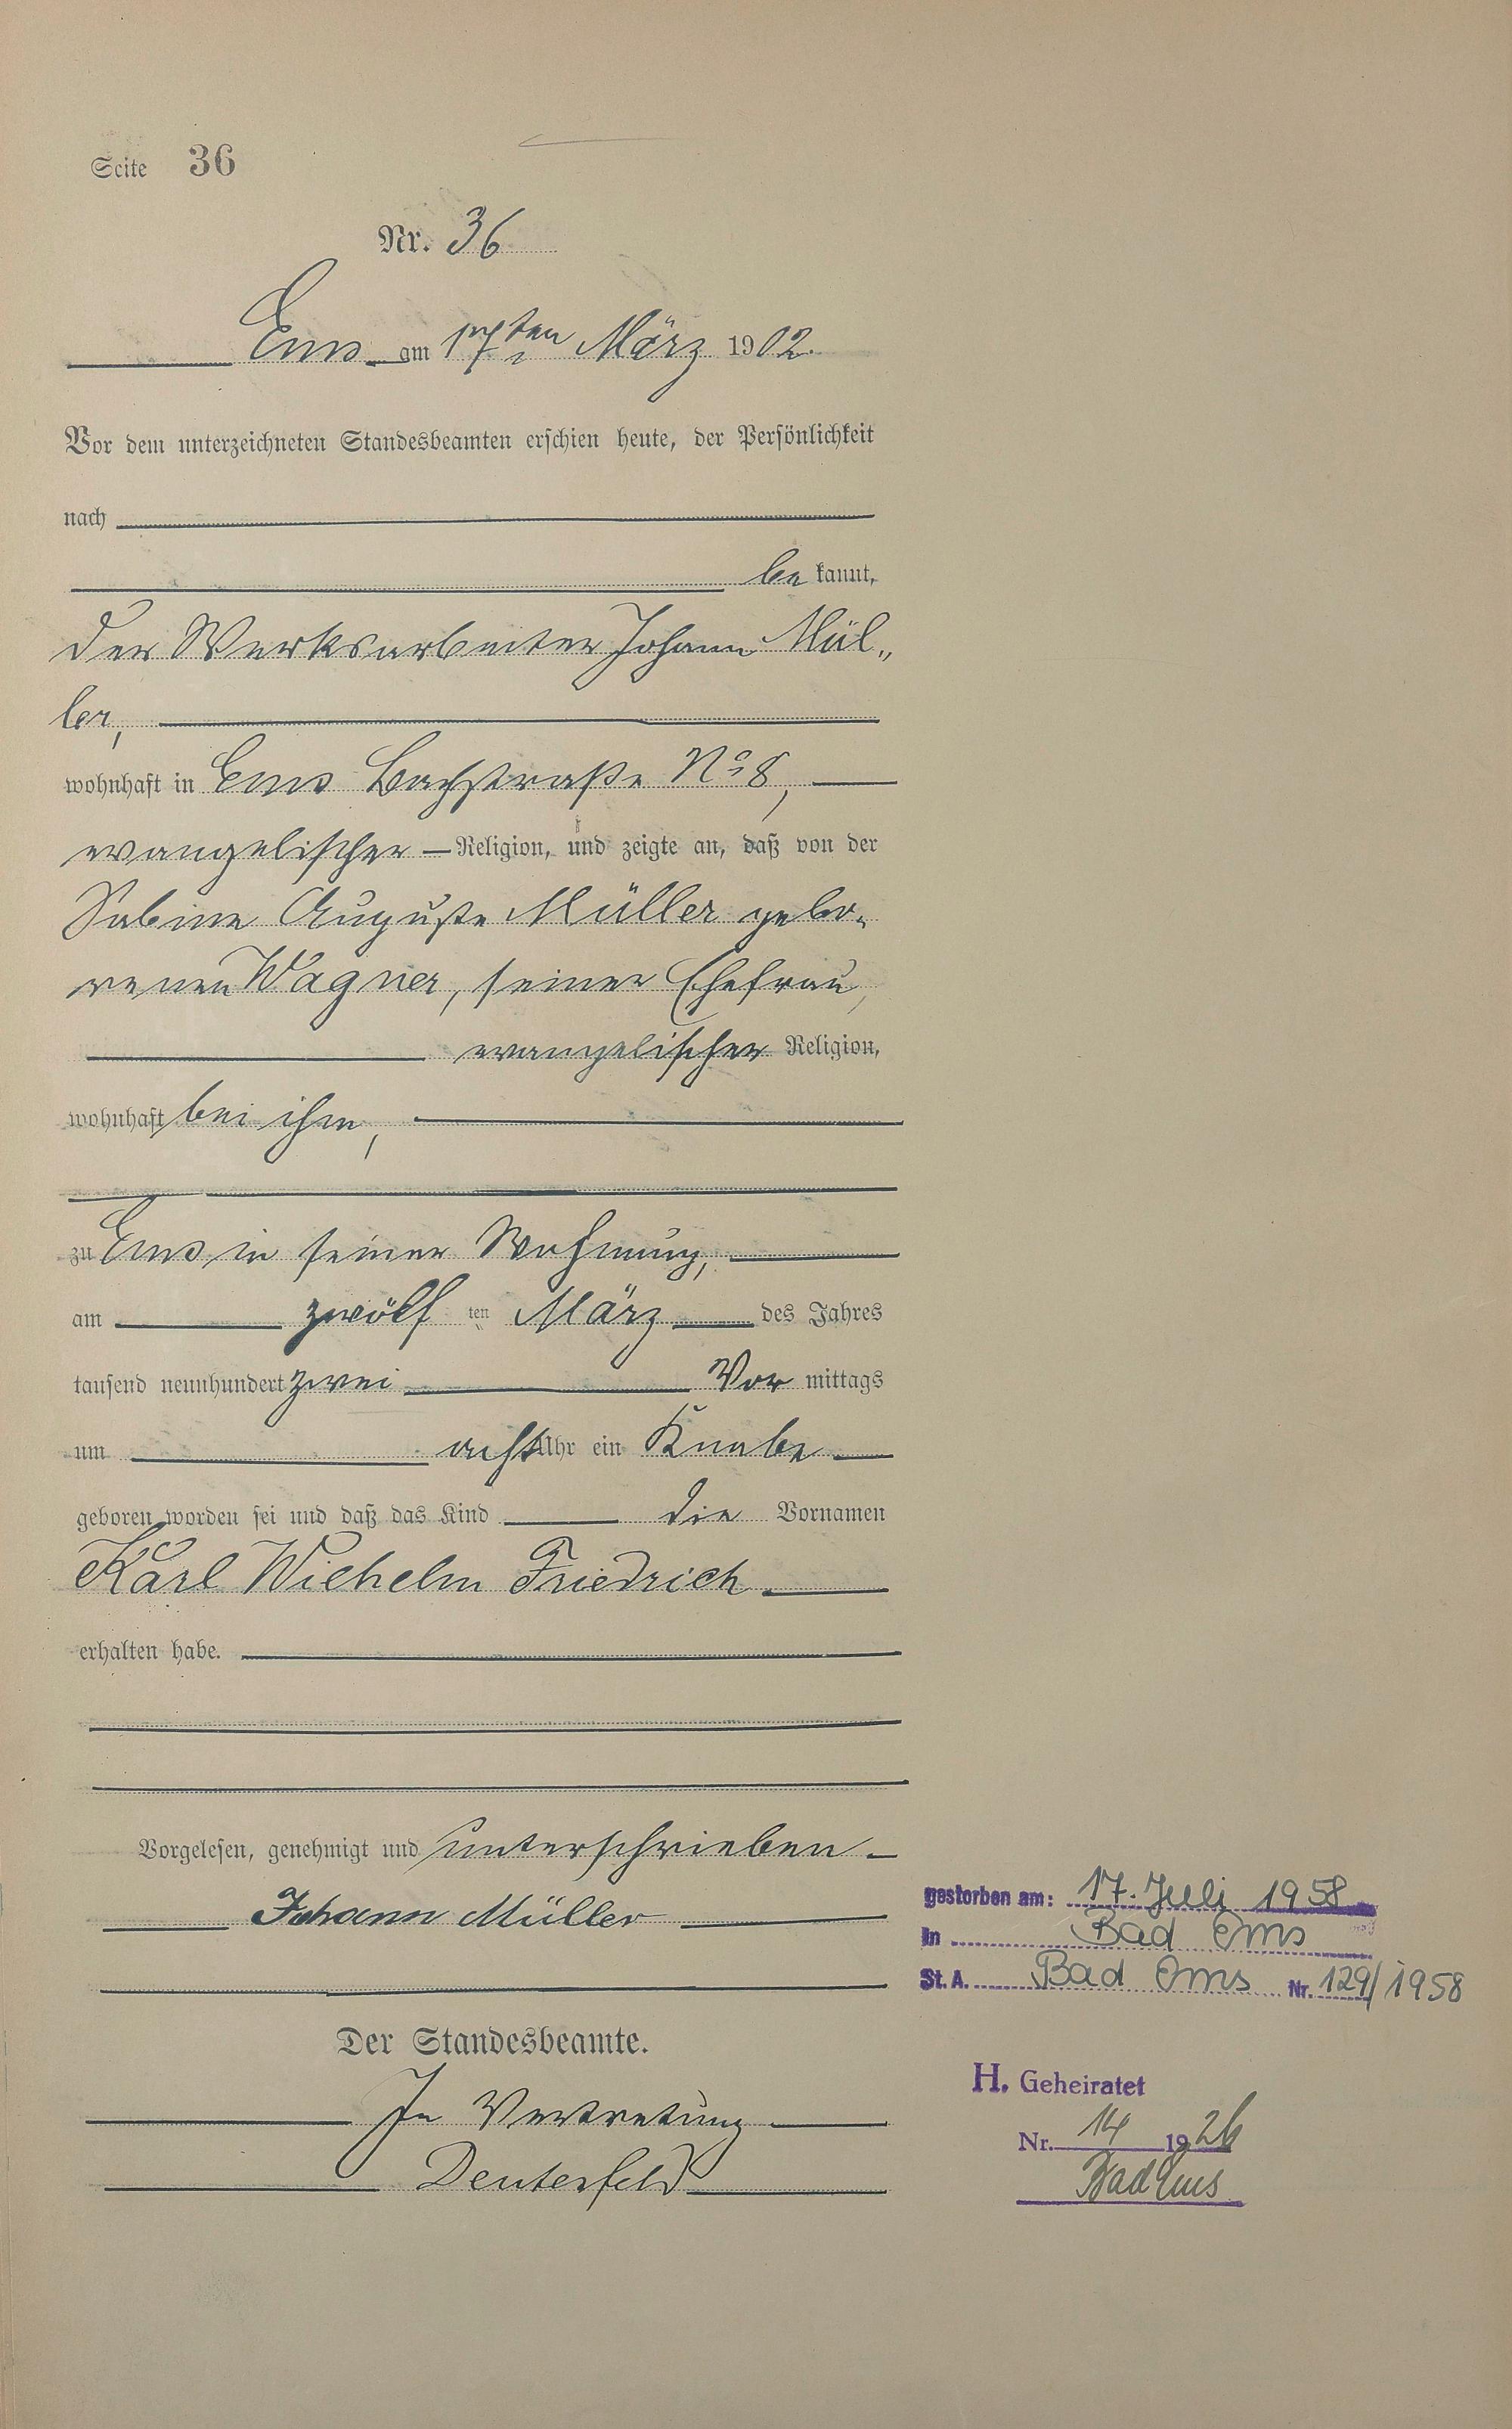 Seite 36
Nr. 36
Ems am 17ten März 1902.
Vor dem unterzeichneten Standesbeamten erschien heute, der Persönlichkeit
nach
bekannt,
der Werksarbeiter Johann Mül„
ler,
wohnhaft in Ems Bachstraße No 8,
evangelischer Religion, und zeigte an, daß von der
Sabine Auguste Müller gebo„
renen Wagner, seiner Ehefrau,
evangelischer Religion,
wohnhaft bei ihm,
zu Ems in seiner Wohnung,
am zwölf ten März des Jahres
tausend neunhundert zwei Vor mittags
um acht Uhr ein Knabe
geboren worden sei und daß das Kind die Vornamen
Karl Wilhelm Friedrich
erhalten habe.
Vorgelesen, genehmigt und unterschrieben
Johann Müller
Der Standesbeamte.
In Vertretung
Deuterfeld
gestorben am: 17. Juli 1958
in Bad Ems
St. A. Bad Ems Nr. 129/1958
H. Geheiratet
Nr. 14 1926
Bad Ems